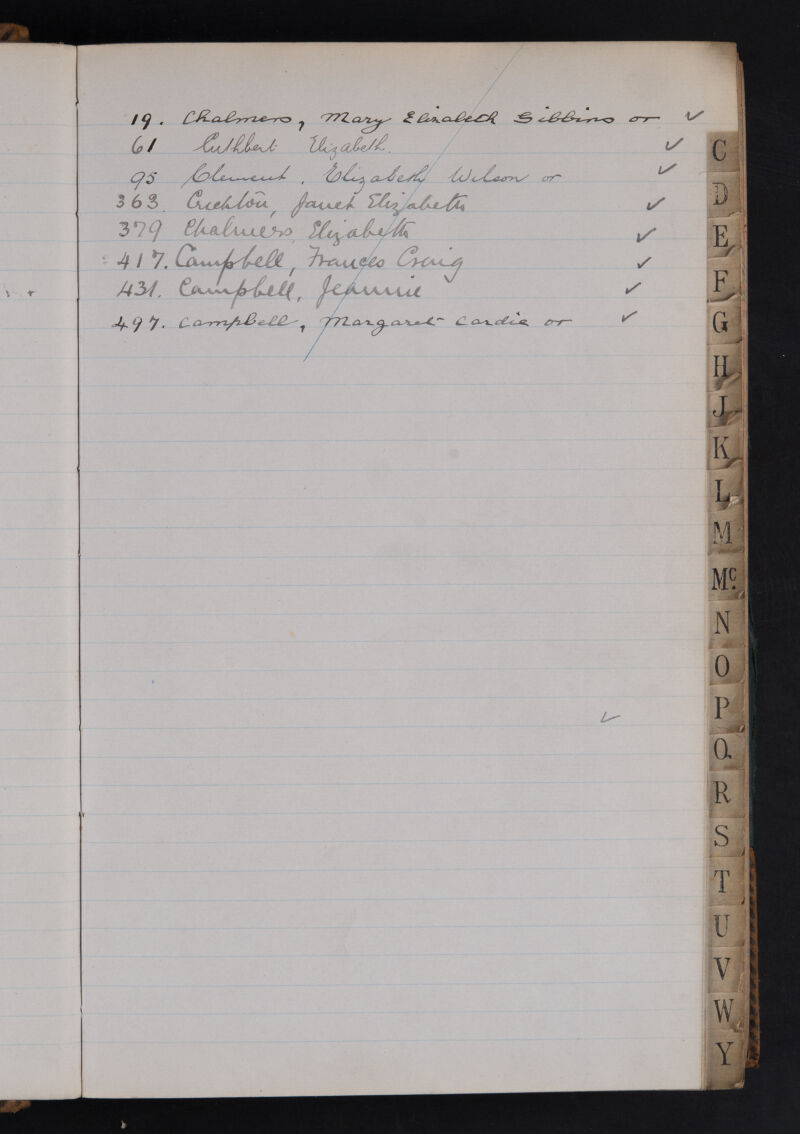 19. Chalmers, Mary Elizabeth Gibbins or ✓
61 Cuthbert Elizabeth. ✓
95 Clement, Elizabeth Wilson or ✓
363 Crichton, Janet Elizabeth ✓
379 Chalmers, Elizabeth ✓
417. Campbell, Frances Craig ✓
431. Campbell, Jeannie ✓
497. Campbell, Margaret Cardie or ✓
✓
C
D
E
F
G
H
J
K
L
M
Mc.
N
O
P
Q.
R
S
T
U
V
W
Y